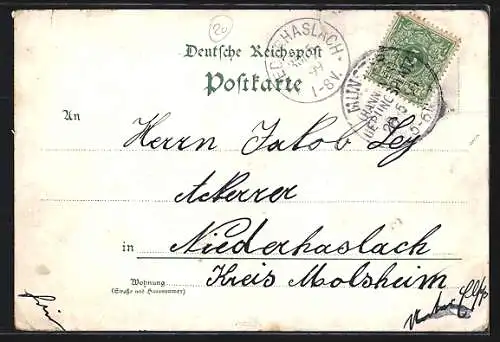 20
Deutsche Reichspost
HASLACH
99
1-8V.
Postkarte
An
Herrn Jakob Ley
Ackerer
in Niederhaslach
Kreis Molsheim
Wohnung
(Straße und Hausnummer)